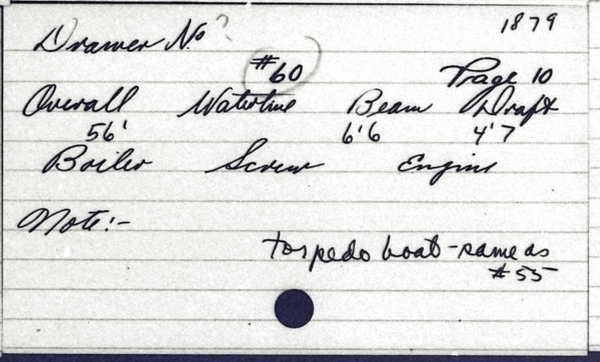 1879
Drawer No ?
#60
Page 10
Overall Waterline Beam Draft
56' 6'6 4'7
Boiler Screw Engine
Note:-
torpedo boat - same as
#55